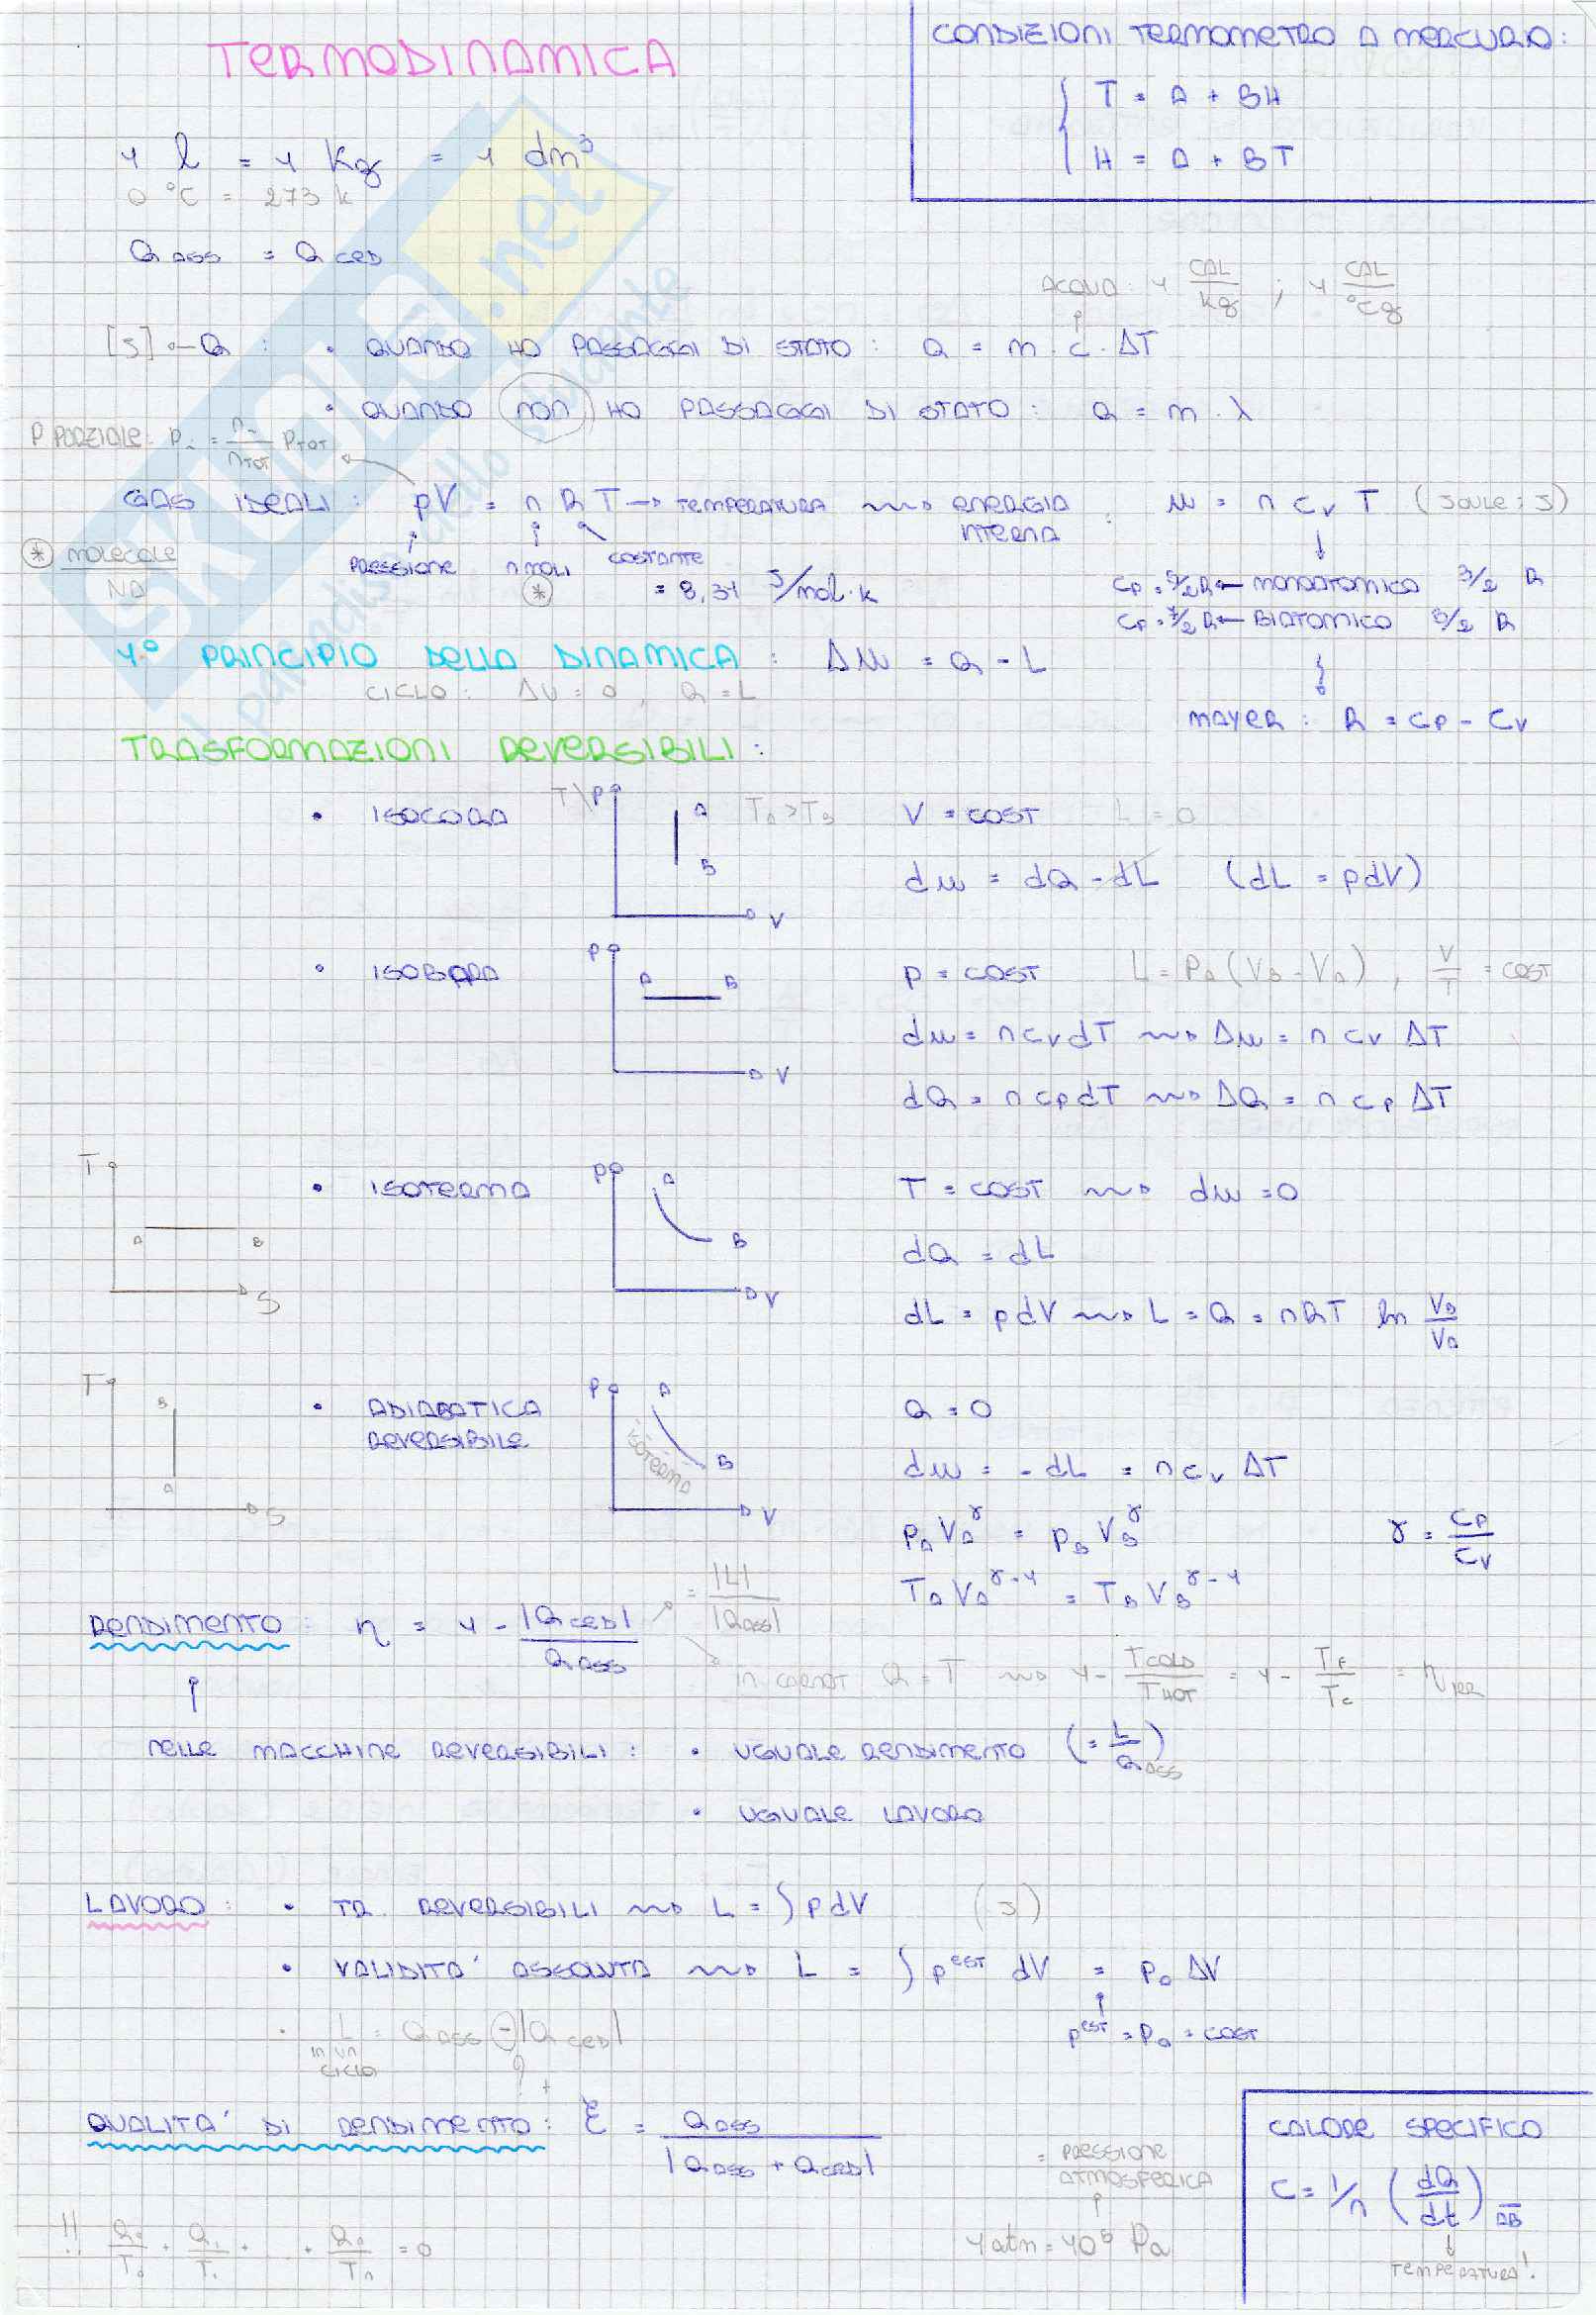 TERMODINAMICA
CONDIZIONI TERMOMETRO A MERCURIO:
T = A + BH
H = A + BT
1 l = 1 Kg = 1 dm³
0 °C = 273 K
Q ASS = Q CED
ACQUA: 1 CAL/kg ; 1 CAL/°Cg
[J] ← Q : • QUANDO HO PASSAGGI DI STATO : Q = m · c · ΔT
• QUANDO NON HO PASSAGGI DI STATO : Q = m · λ
P PARZIALE: Pᵢ = nᵢ/nTOT PTOT
GAS IDEALI : pV = n R T → TEMPERATURA ~> ENERGIA INTERNA : U = n cv T (JOULE: J)
PRESSIONE n MOLI * COSTANTE = 8,31 J/mol·K
* MOLECOLE/NA
cp = 5/2 R ← MONOATOMICO 3/2 R
cp = 7/2 R ← BIATOMICO 5/2 R
1° PRINCIPIO DELLA DINAMICA : ΔU = Q - L
CICLO : ΔU = 0 , Q = L
MAYER : R = cp - cv
TRASFORMAZIONI REVERSIBILI :
• ISOCORA T\P A B V TA > TB V = COST L = 0
dU = dQ - dL (dL = pdV)
• ISOBARA P A B V P = COST L = PA (VB - VA) , V/T = COST
dU = n cv dT ~> ΔU = n cv ΔT
dQ = n cp dT ~> ΔQ = n cp ΔT
T A B S • ISOTERMA P A B V T = COST ~> dU = 0
dQ = dL
dL = pdV ~> L = Q = nRT ln VB/VA
T B A S • ADIABATICA REVERSIBILE P A B V ISOTERMA Q = 0
dU = - dL = n cv ΔT
PA VA^γ = PB VB^γ γ = cp/cv
TA VA^γ-1 = TB VB^γ-1
RENDIMENTO : η = 1 - |Q CED|/Q ASS = |L|/|Q ASS|
IN CARNOT Q = T ~> 1 - TCOLD/THOT = 1 - TF/TC = ηREV
NELLE MACCHINE REVERSIBILI : • UGUALE RENDIMENTO (= L/Q ASS)
• UGUALE LAVORO
LAVORO : • TR. REVERSIBILI ~> L = ∫ p dV (J)
• VALIDITA' ASSOLUTA ~> L = ∫ p^EST dV = P₀ ΔV
p^EST = P₀ = COST
• L IN UN CICLO = Q ASS - |Q CED|
+
QUALITA' DI RENDIMENTO : ξ = Q ASS/|Q ASS + Q CED|
= PRESSIONE ATMOSFERICA
1 atm = 10⁵ Pa
!! Q₀/T₀ + Q₁/T₁ + .. + Qn/Tn = 0
CALORE SPECIFICO
C = 1/n (dQ/dt) AB
TEMPERATURA!
SKUOLA.net
il paradiso dello studente